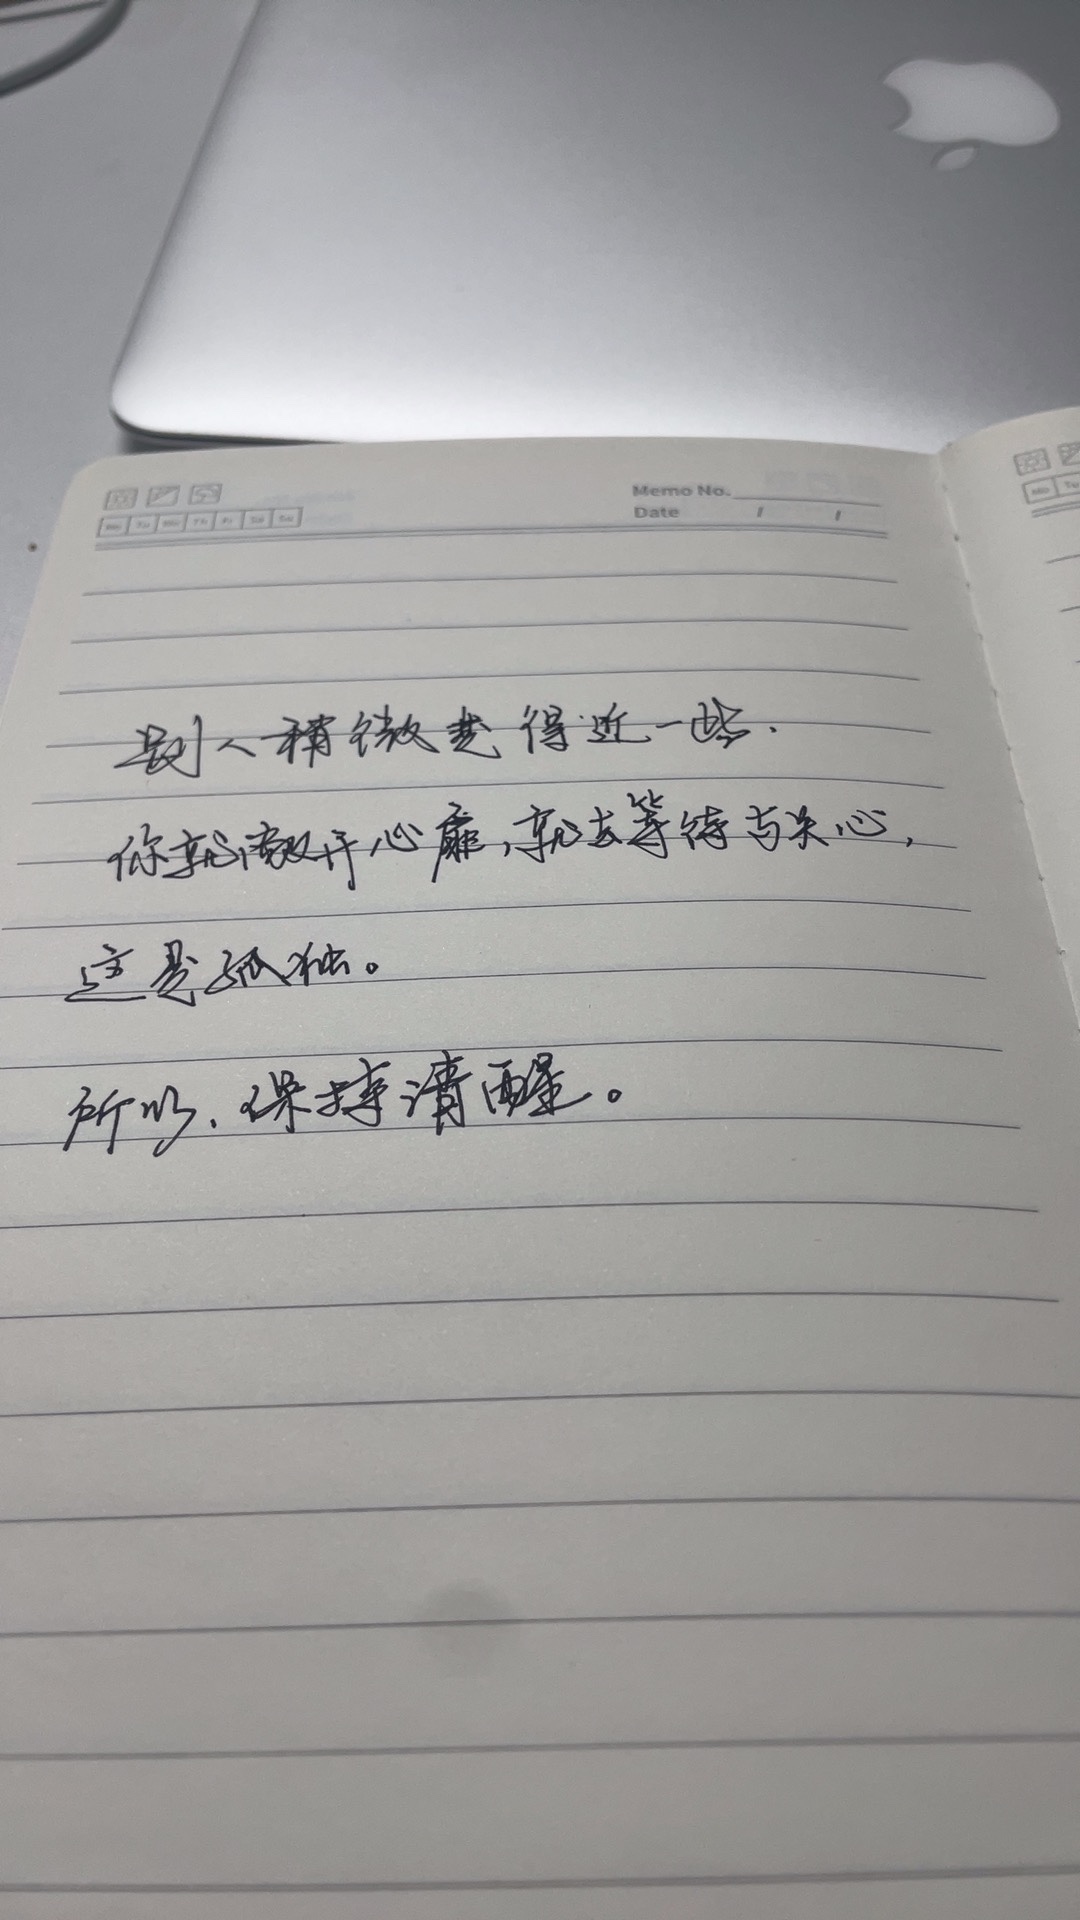 Memo No.
Date / /
Mo Tu We Th Fr Sa Su
Mo Tu
别人稍微走得近一些.
你就敞开心扉,就去等待与关心,
这是孤独。
所以.保持清醒。